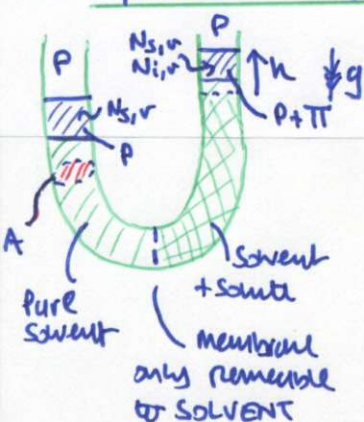 P
P
Ns,v
Ns,v
Ni,v
h
g
P
P+π
A
Pure
solvent
Solvent
+ Solute
membrane
only permeable
to SOLVENT